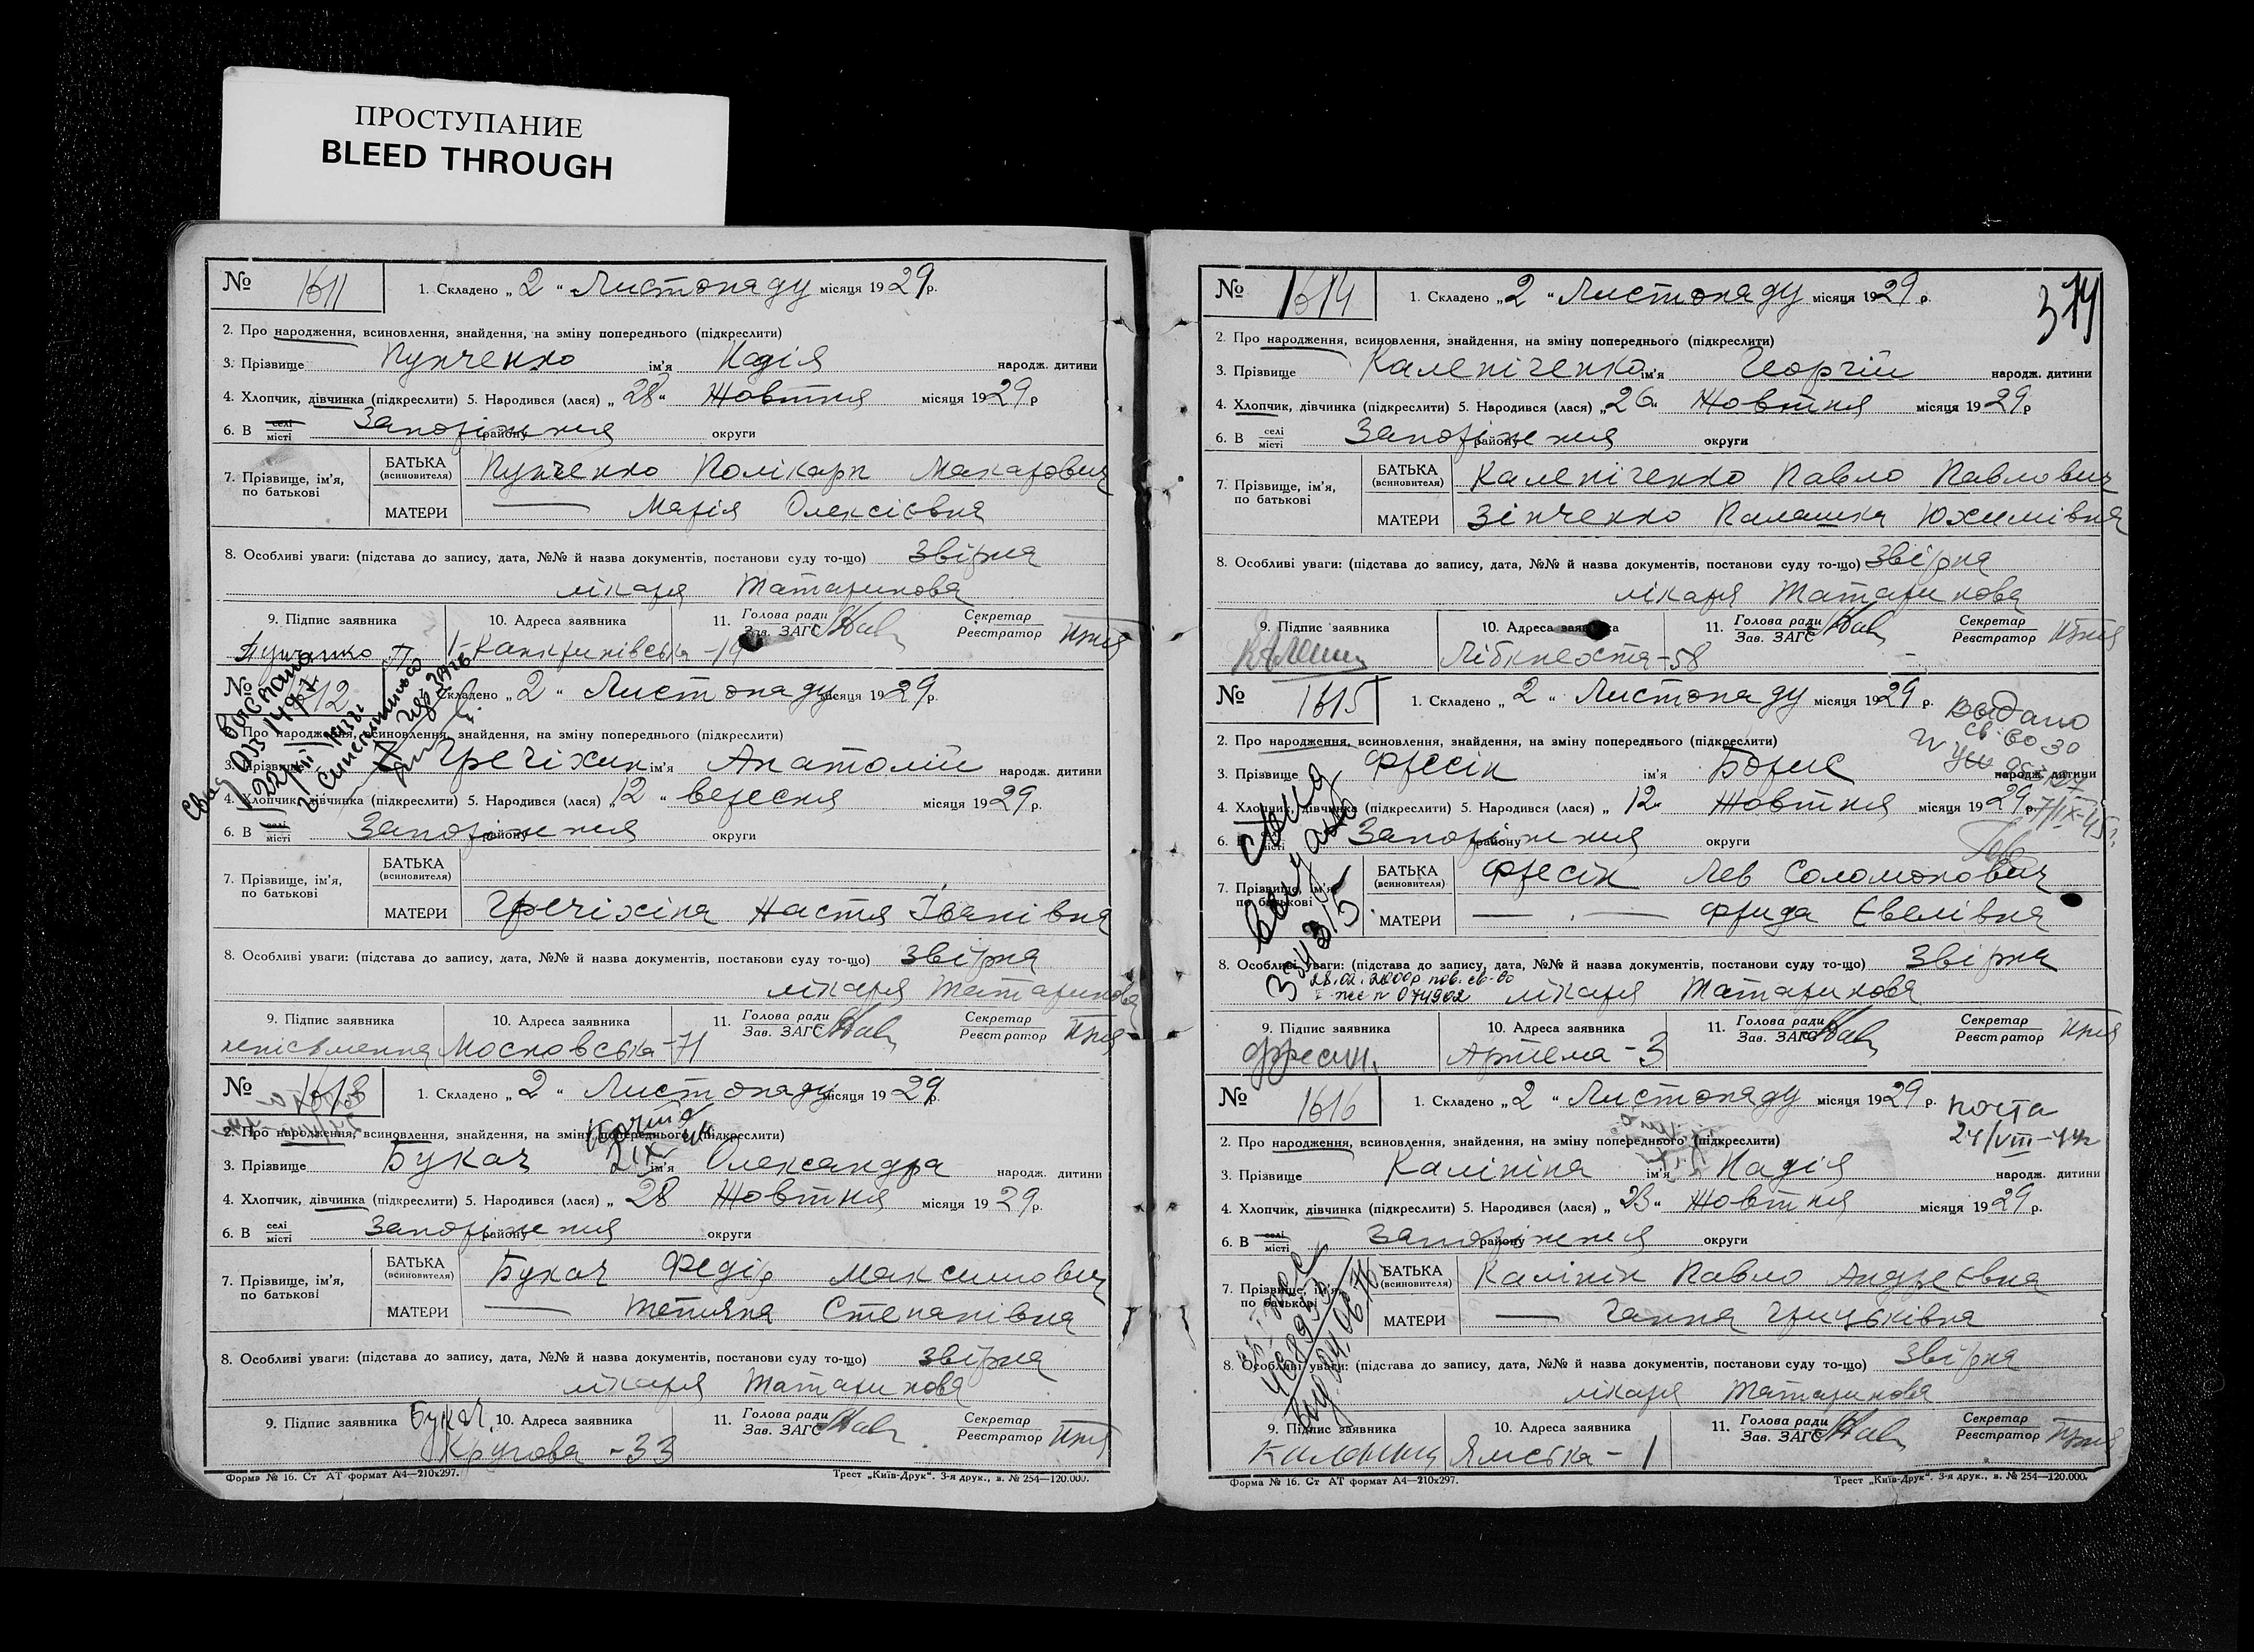 ПРОСТУПАНИЕ
BLEED THROUGH
№ 1611 1. Складено „ 2 “ Листопаду місяця 1929 р.
2. Про народження, всиновлення, знайдення, на зміну попереднього (підкреслити)
3. Прізвище Пунченко ім'я Надія народж. дитини
4. Хлопчик, дівчинка (підкреслити) 5. Народився (лася) „ 28 “ Жовтня місяця 1929 р
6. В селі місті Запоріжжя району округи
7. Прізвище, ім'я, по батькові
БАТЬКА (всиновителя) Пунченко Полікарп Макарович
МАТЕРИ —— Марія Олексієвна
8. Особливі уваги: (підстава до запису, дата, №№ й назва документів, постанови суду то-що) Звірна
лікаря Татаринова
9. Підпис заявника 10. Адреса заявника 11. Голова ради Зав. ЗАГС Секретар Реєстратор
№ 1612 1. Складено „ 2 “ Листопаду місяця 1929 р.
2. Про народження, всиновлення, знайдення, на зміну попереднього (підкреслити)
3. Прізвище Гречіхин ім'я Анатолій народж. дитини
4. Хлопчик, дівчинка (підкреслити) 5. Народився (лася) „ 12 “ вересня місяця 1929 р.
6. В селі місті Запоріжжя району округи
7. Прізвище, ім'я, по батькові
БАТЬКА (всиновителя)
МАТЕРИ Гречіхіна Настя Іванівна
8. Особливі уваги: (підстава до запису, дата, №№ й назва документів, постанови суду то-що) Звірна
лікаря Татаринова
9. Підпис заявника 10. Адреса заявника 11. Голова ради Зав. ЗАГС Секретар Реєстратор
неписьменна Московська - 71
№ 1613 1. Складено „ 2 “ Листопаду місяця 1929 р.
2. Про народження, всиновлення, знайдення, на зміну попереднього (підкреслити)
3. Прізвище Букач ім'я Олександра народж. дитини
4. Хлопчик, дівчинка (підкреслити) 5. Народився (лася) „ 28 Жовтня місяця 1929 р.
6. В селі місті Запоріжжя району округи
7. Прізвище, ім'я, по батькові
БАТЬКА (всиновителя) Букач Федір Максимович
МАТЕРИ —— Тетяна Степанівна
8. Особливі уваги: (підстава до запису, дата, №№ й назва документів, постанови суду то-що) звірна
лікаря Татаринова
9. Підпис заявника Букач 10. Адреса заявника 11. Голова ради Зав. ЗАГС Секретар Реєстратор
Кругова - 33
Форма № 16. Ст АТ формат А4—210х297. Трест „Київ-Друк“. 3-я друк., в. № 254—120.000.
№ 1614 1. Складено „ 2 “ Листопаду місяця 1929 р. 374
2. Про народження, всиновлення, знайдення, на зміну попереднього (підкреслити)
3. Прізвище Калепіченко ім'я Георгій народж. дитини
4. Хлопчик, дівчинка (підкреслити) 5. Народився (лася) „ 26 “ Жовтня місяця 1929 р
6. В селі місті Запоріжжя району округи
7. Прізвище, ім'я, по батькові
БАТЬКА (всиновителя) Калепіченко Павло Павлович
МАТЕРИ Зінченко Палашка Юхимівна
8. Особливі уваги: (підстава до запису, дата, №№ й назва документів, постанови суду то-що) Звірна
лікаря Татаринова
9. Підпис заявника 10. Адреса заявника 11. Голова ради Зав. ЗАГС Секретар Реєстратор
Лібкнехта - 58
№ 1615 1. Складено „ 2 “ Листопаду місяця 1929 р. Выдано
2. Про народження, всиновлення, знайдення, на зміну попереднього (підкреслити)
3. Прізвище Фресін ім'я Борис народж. дитини
4. Хлопчик, дівчинка (підкреслити) 5. Народився (лася) „ 12 “ Жовтня місяця 1929 р.
6. В селі місті Запоріжжя району округи
7. Прізвище, ім'я, по батькові
БАТЬКА (всиновителя) Фресін Лев Соломонович
МАТЕРИ —— Фрида Євелівна
8. Особливі уваги: (підстава до запису, дата, №№ й назва документів, постанови суду то-що) Звірна
28.02.2000р пов. св-во
лікаря Татаринова
9. Підпис заявника 10. Адреса заявника 11. Голова ради Зав. ЗАГС Секретар Реєстратор
Фресин. Артема - 3
№ 1616 1. Складено „ 2 “ Листопаду місяця 1929 р. почта
24/VIII-44
2. Про народження, всиновлення, знайдення, на зміну попереднього (підкреслити)
3. Прізвище Калініна ім'я Надія народж. дитини
4. Хлопчик, дівчинка (підкреслити) 5. Народився (лася) „ 23 “ Жовтня місяця 1929 р.
6. В селі місті Запоріжжя району округи
7. Прізвище, ім'я, по батькові
БАТЬКА (всиновителя) Калінін Павло Андреєвна
МАТЕРИ —— Ганна Грицьківна
8. Особливі уваги: (підстава до запису, дата, №№ й назва документів, постанови суду то-що) Звірна
лікаря Татаринова
9. Підпис заявника 10. Адреса заявника 11. Голова ради Зав. ЗАГС Секретар Реєстратор
Ямська - 1
Форма № 16. Ст АТ формат А4—210х297. Трест „Київ-Друк“. 3-я друк., в. № 254—120.000.